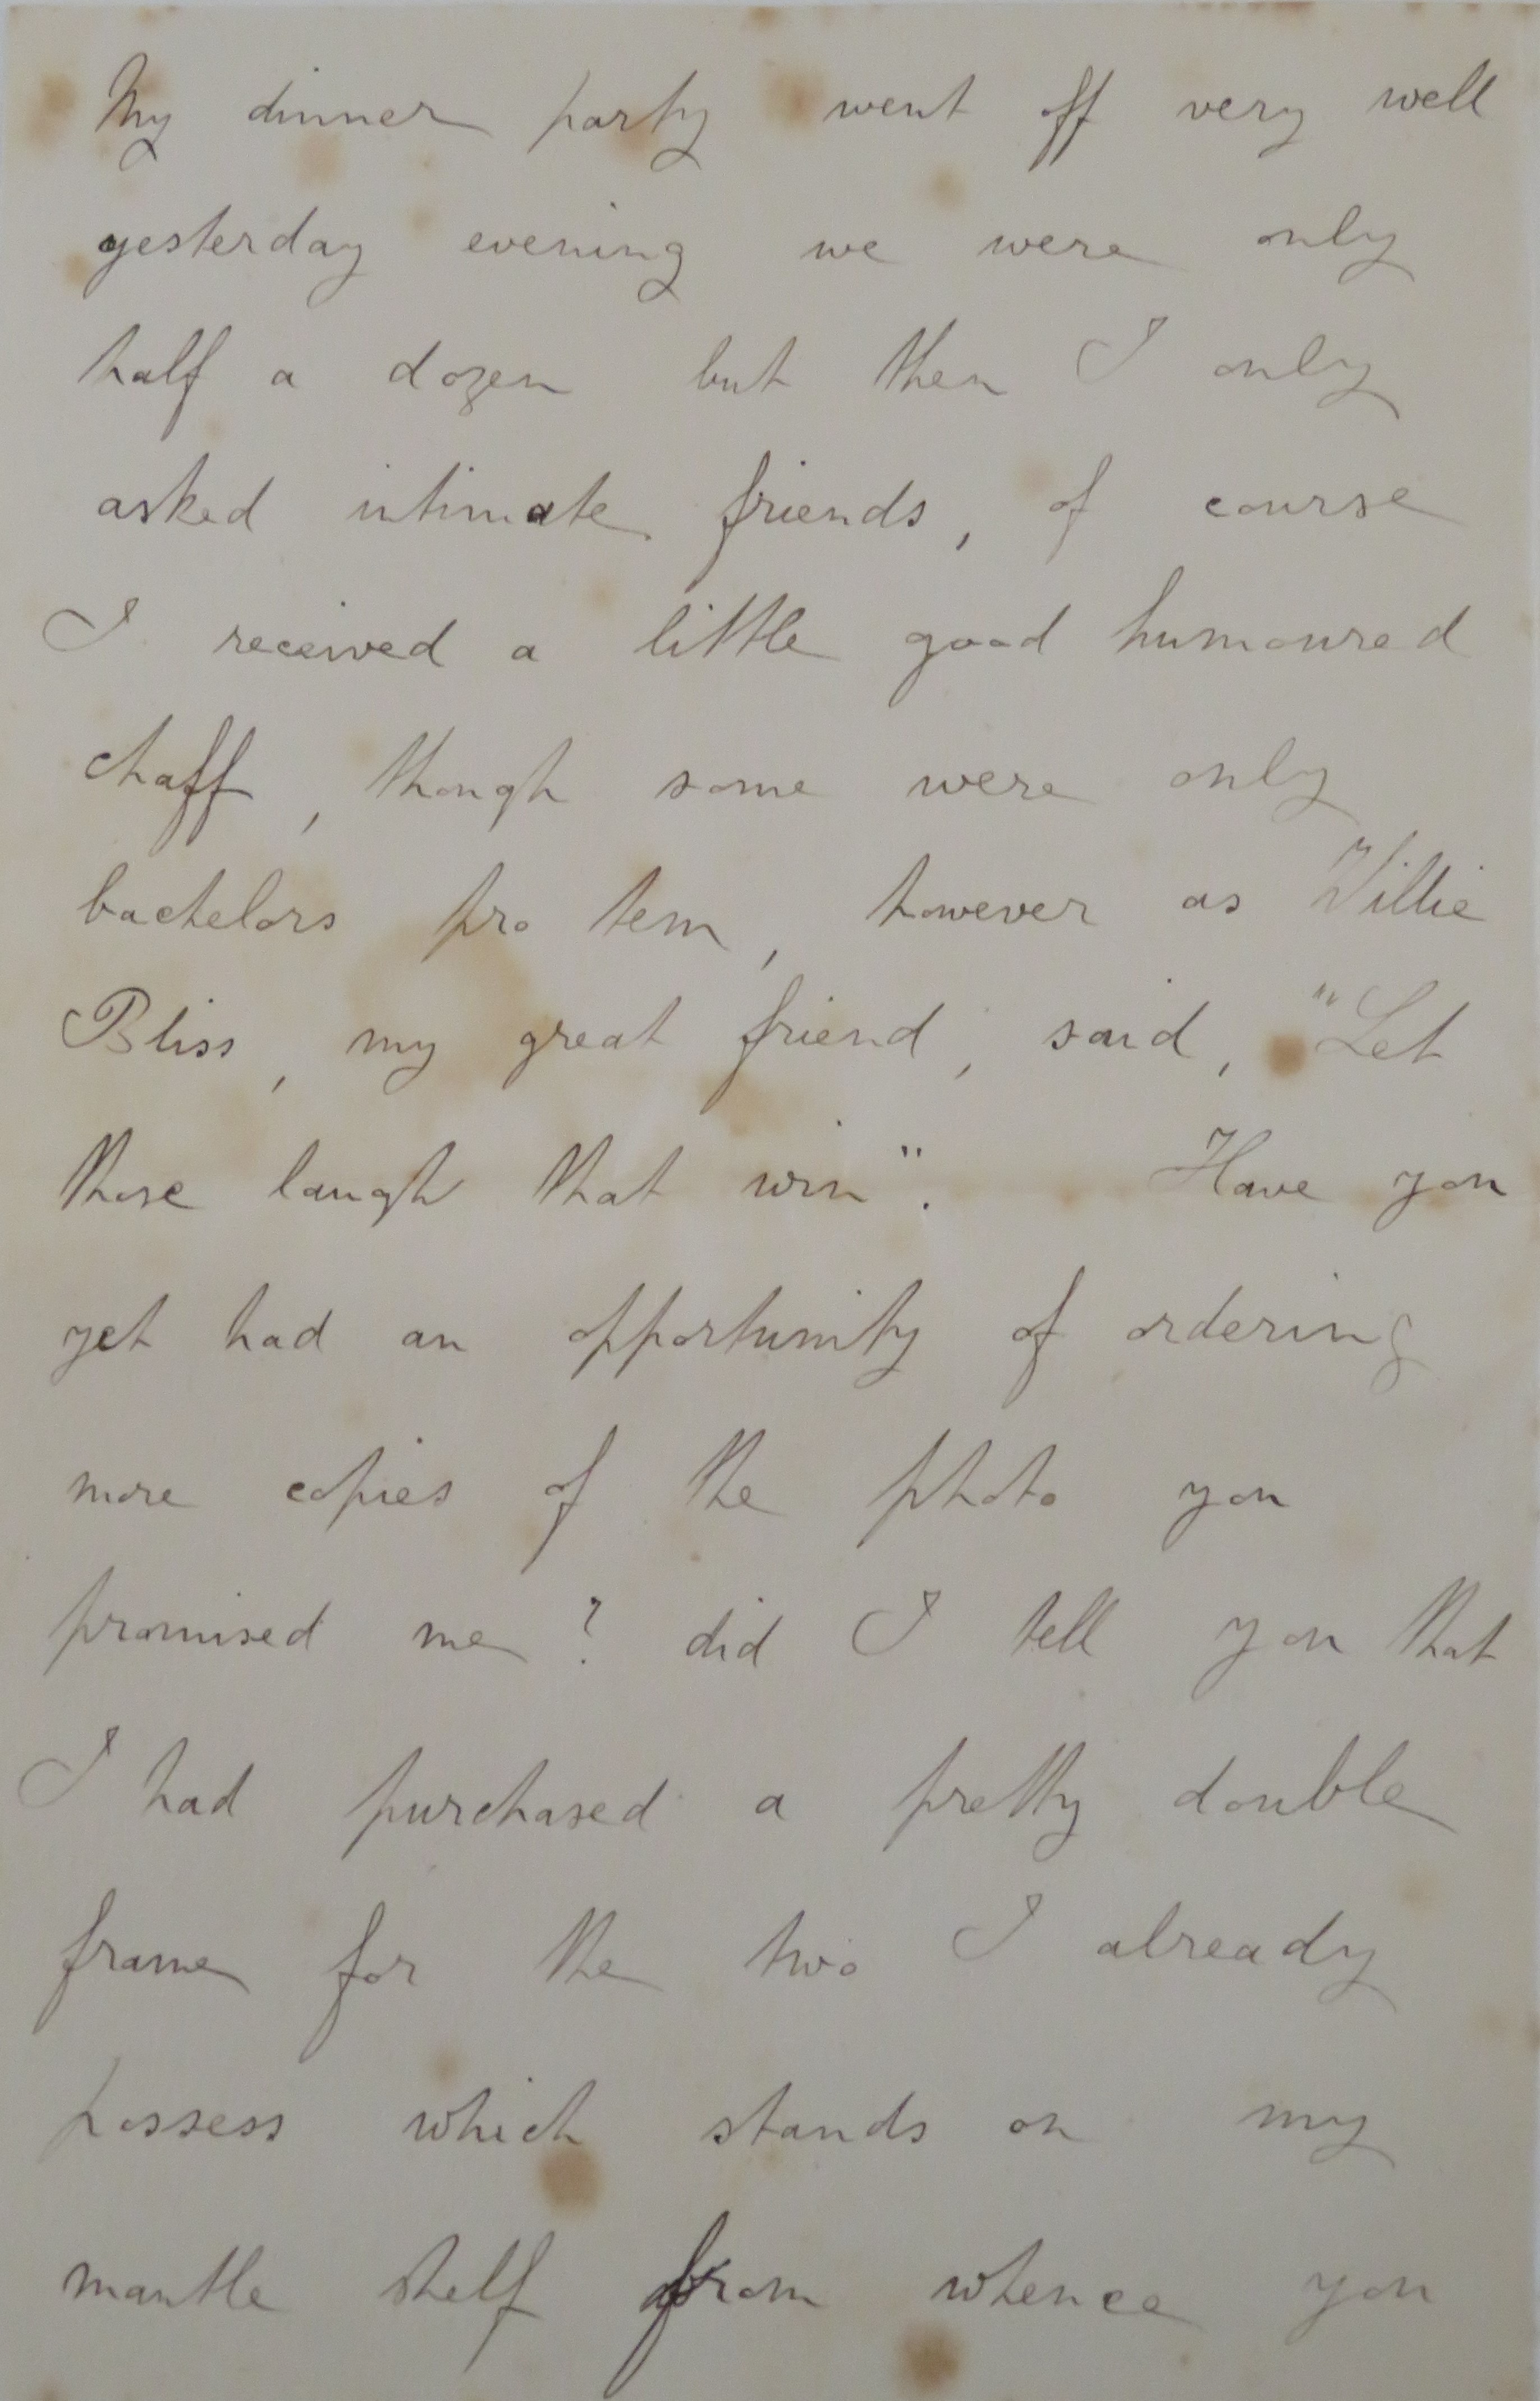 My dinner party went off very well
yesterday evening we were only
half a dozen but then I only
asked intimate friends, of course
I received a little good humoured
chaff, though some were only
bachelors pro tem, however as Willie
Bliss, my great friend, said, "Let
those laugh that win". Have you
yet had an opportunity of ordering
more copies of the photo you
promised me? did I tell you that
I had purchased a pretty double
frame for the two I already
possess which stands on my
mantle shelf from whence you